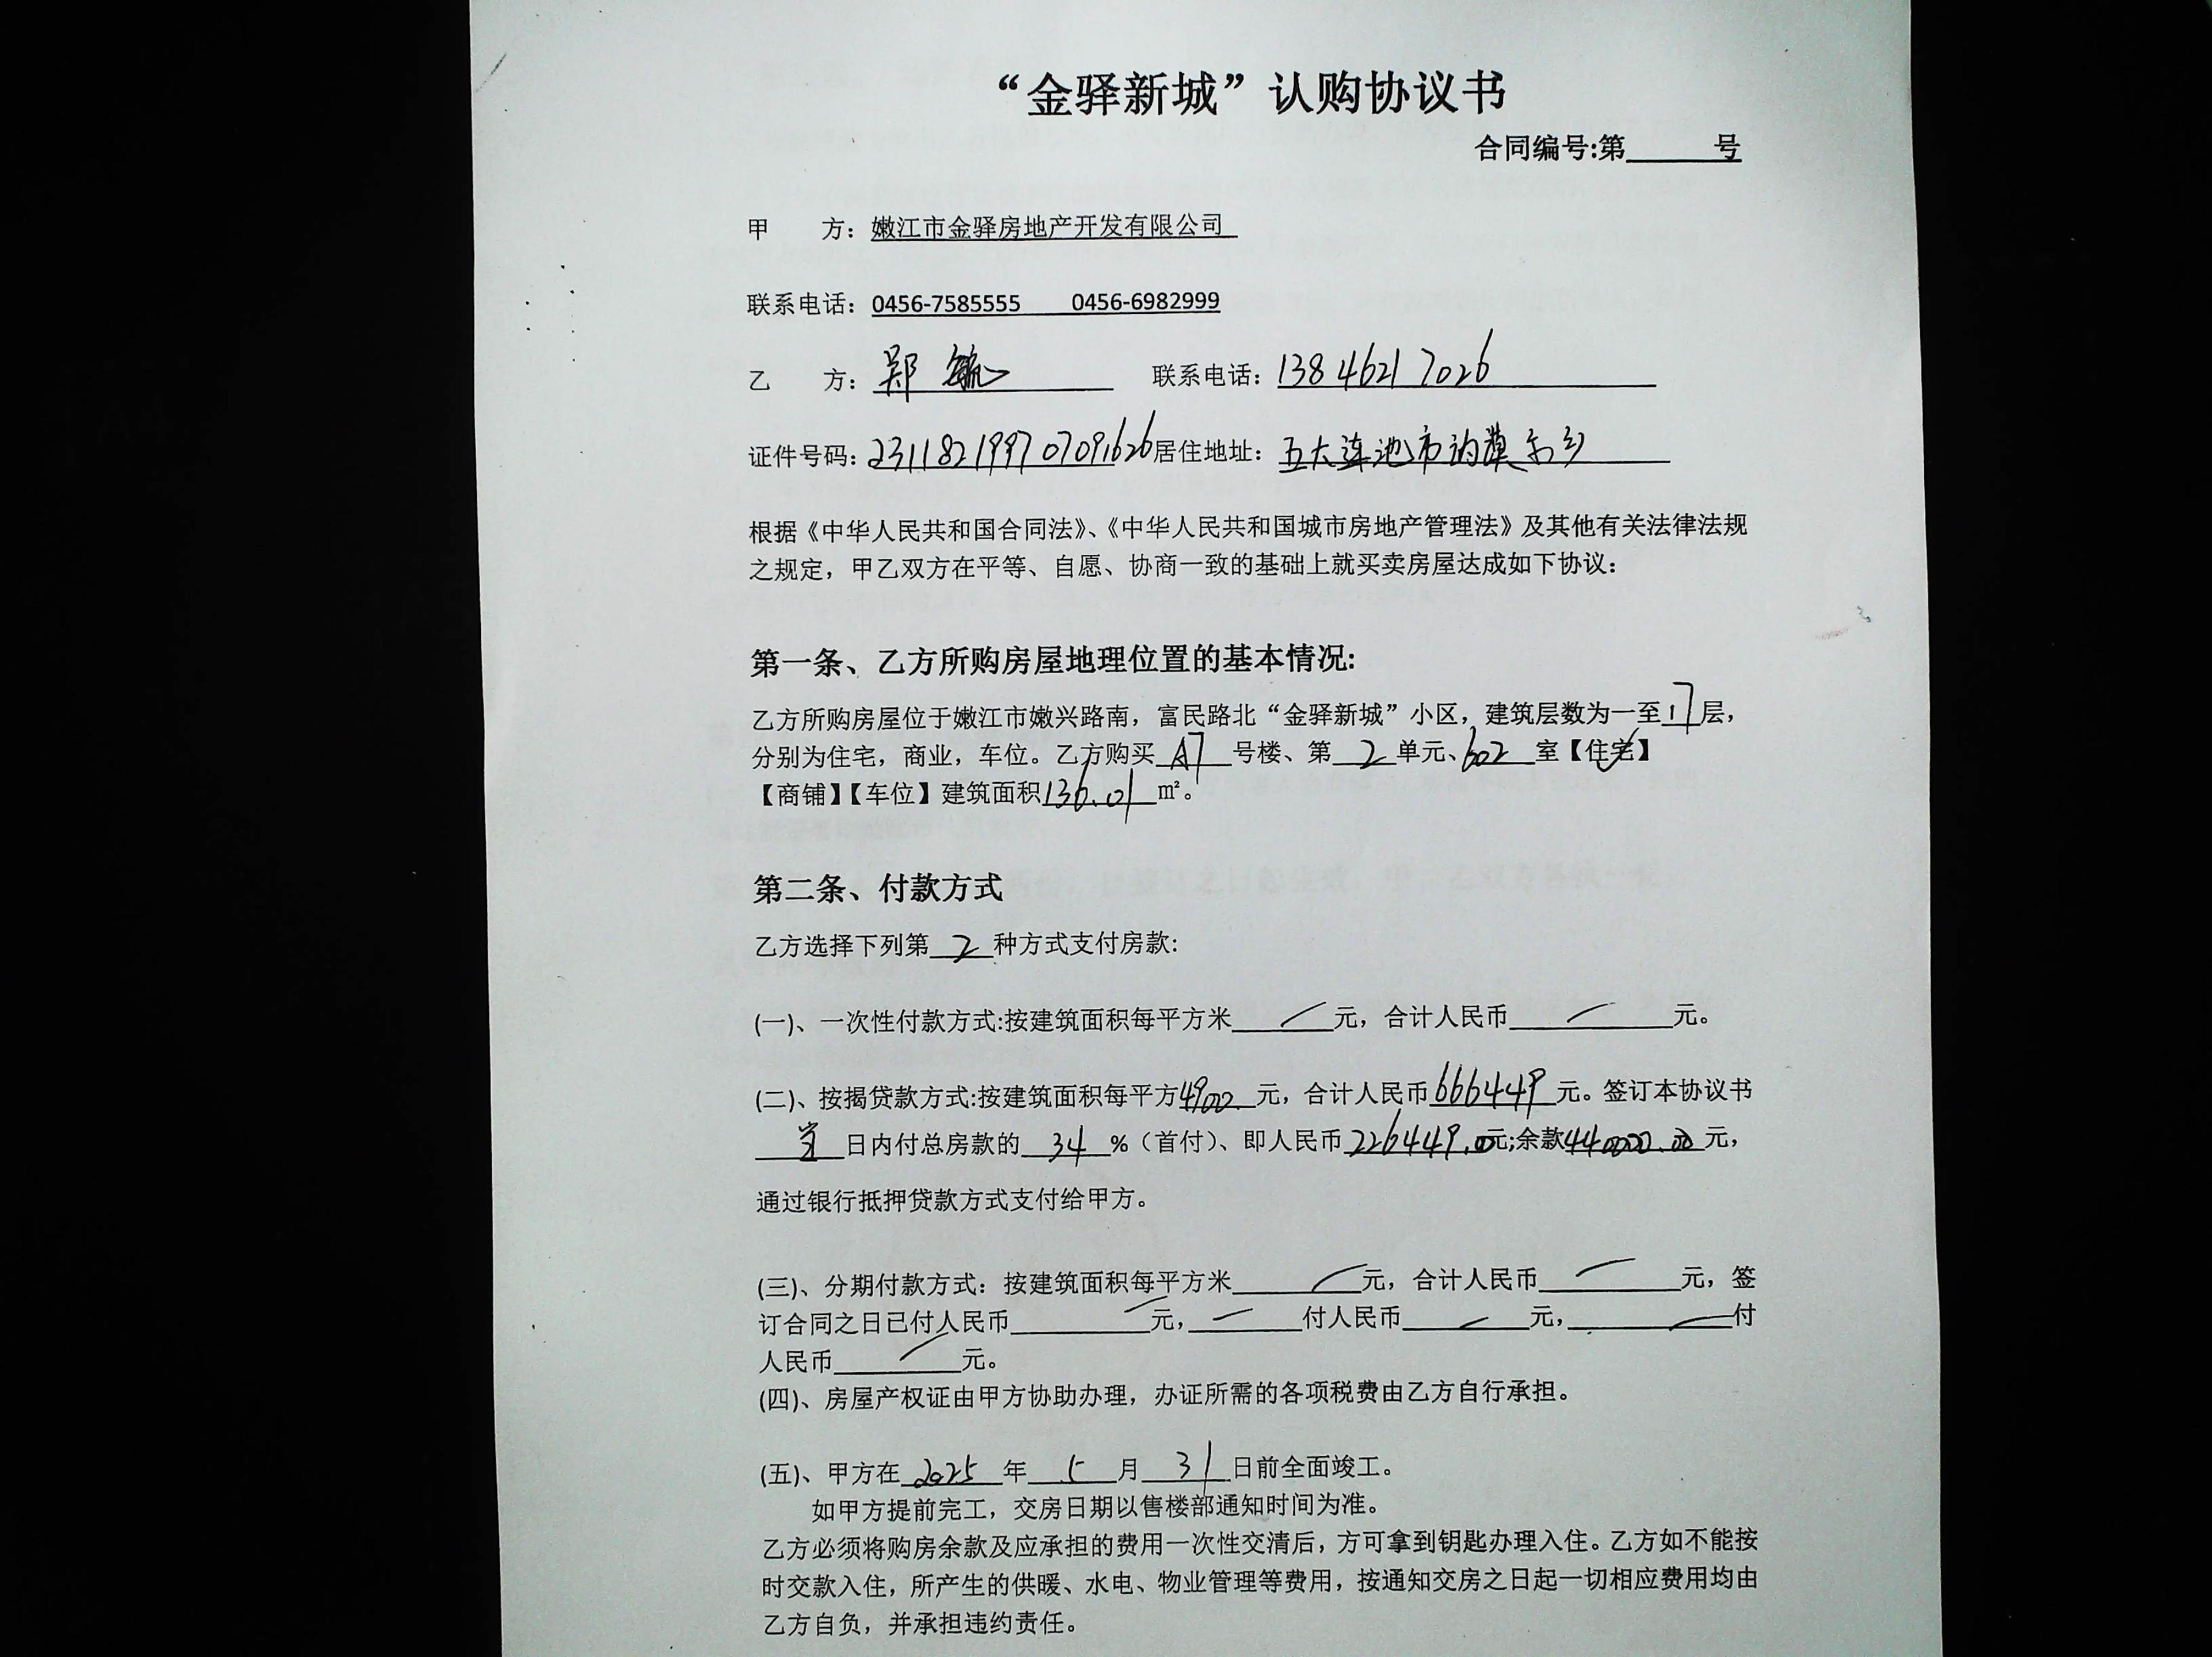 “金驿新城”认购协议书
合同编号:第______号
甲　　方：嫩江市金驿房地产开发有限公司
联系电话：0456-7585555　　0456-6982999
乙　　方：郑 毓　联系电话：13846217026
证件号码：231182199707091626 居住地址：五大连池市讷谟尔乡
根据《中华人民共和国合同法》、《中华人民共和国城市房地产管理法》及其他有关法律法规
之规定，甲乙双方在平等、自愿、协商一致的基础上就买卖房屋达成如下协议：
第一条、乙方所购房屋地理位置的基本情况:
乙方所购房屋位于嫩江市嫩兴路南，富民路北“金驿新城”小区，建筑层数为一至17层，
分别为住宅，商业，车位。乙方购买 A7 号楼、第 2 单元、602 室【住宅】
【商铺】【车位】建筑面积136.01㎡。
第二条、付款方式
乙方选择下列第 2 种方式支付房款:
(一)、一次性付款方式:按建筑面积每平方米 / 元，合计人民币 / 元。
(二)、按揭贷款方式:按建筑面积每平方4900.元，合计人民币666449元。签订本协议书
当 日内付总房款的 34 %（首付）、即人民币226449.00元;余款440000.00元，
通过银行抵押贷款方式支付给甲方。
(三)、分期付款方式：按建筑面积每平方米 / 元，合计人民币 / 元，签
订合同之日已付人民币 / 元， / 付人民币 / 元， / 付
人民币 / 元。
(四)、房屋产权证由甲方协助办理，办证所需的各项税费由乙方自行承担。
(五)、甲方在 2025 年 5 月 31 日前全面竣工。
如甲方提前完工，交房日期以售楼部通知时间为准。
乙方必须将购房余款及应承担的费用一次性交清后，方可拿到钥匙办理入住。乙方如不能按
时交款入住，所产生的供暖、水电、物业管理等费用，按通知交房之日起一切相应费用均由
乙方自负，并承担违约责任。